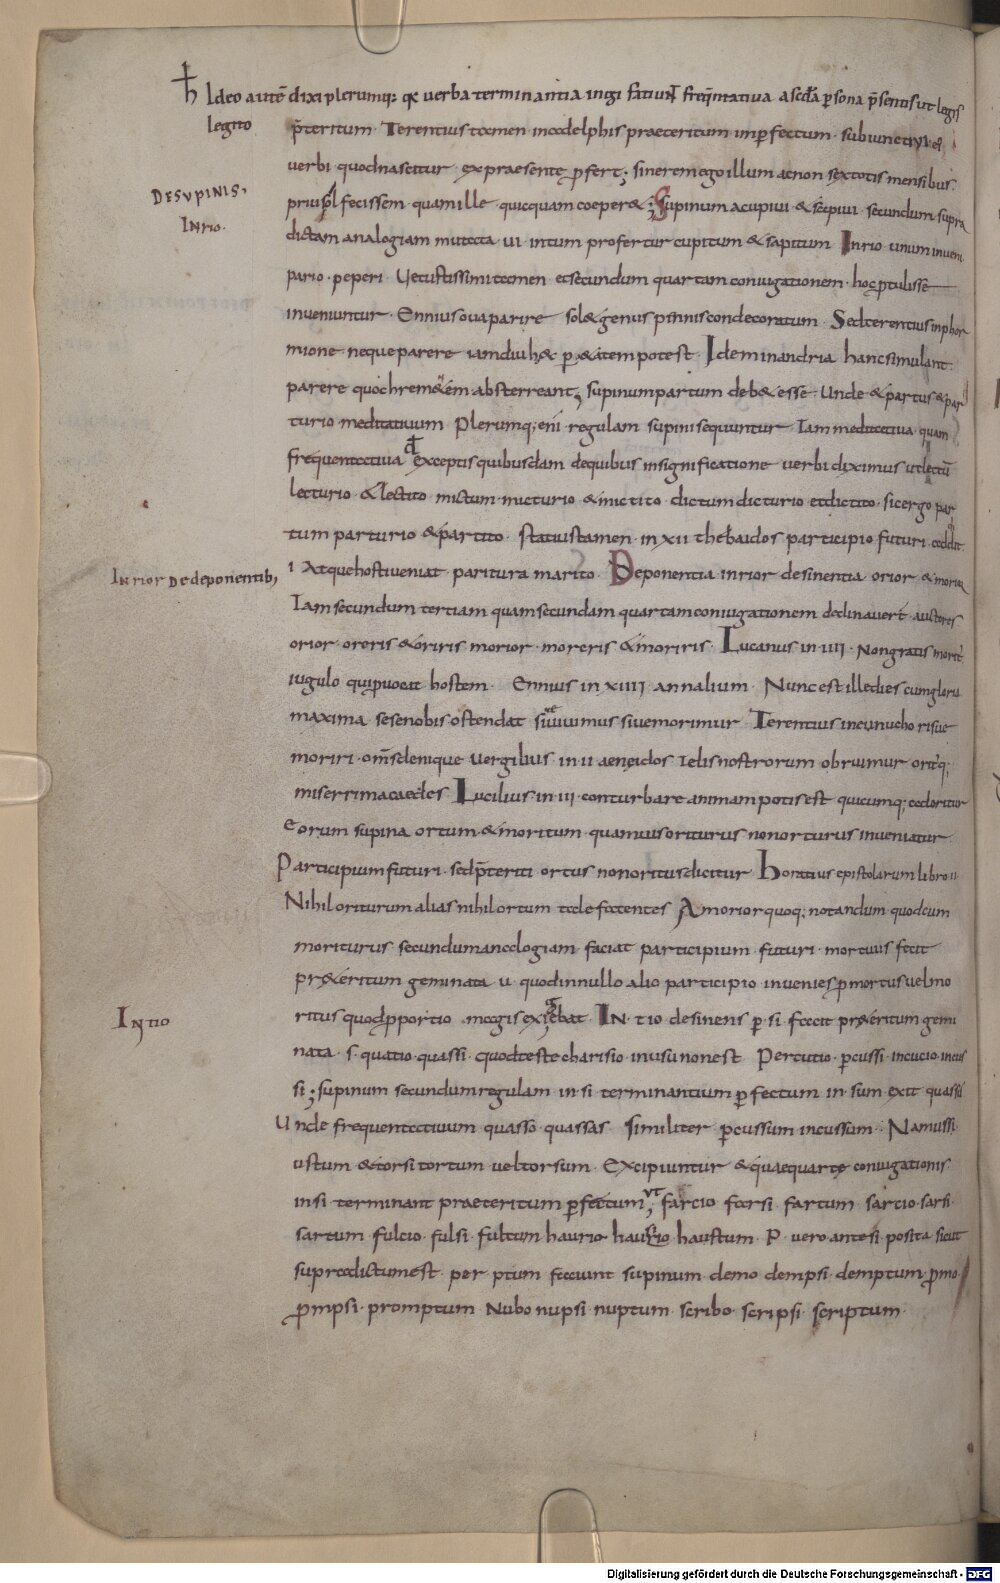 h Ideo autē dixi plerumq; qa verba terminantia in gi faciunt freq̄ntativa a scd̄a p̱sona p̄sentis ut legis
legito p̄teritum · Terentius tamen in adelphis praeteritum imp̱fectum · subiunctivi · &
verbi · quod nascitur · ex praesente p̱fert; sinerem ego illum ac non sex totis mensibus
DE SUPINIS,
prius fecissem · quam ille quicquam coeper&; Supinum a cupivi & sapivi · secundum supra
IN rio ·
dictam analogiam mutata · vi · in tum profertur cupitum & sapitum In rio unum inveni
pario · peperi · Vetustissimi tamen et secundum quartam coniugationem · hoc ptulisse
inveniuntur · Ennius ova parire sol& genus pinnis condecoratum · Sed terentius in phor
mione neque parere iam diu h&c p & ætem potest · Idem in andria hanc simulant
parere quo chremetem absterreant; supinum partum deb& esse · Unde & partus & par
turio meditativum Plerumq; eni regulam supini sequuntur Iam meditativa quam
frequentativa exceptis quibusdam de quibus in significatione verbi diximus ut lectū
lecturio · & lectito mictum · micturio & mictito dictum dicturio et dictito · sic ergo par
tum parturio & partito · statius tamen · in XII thebaidos participio futuri ·
IN rior De deponentib;
i Atque hosti veniat paritura marito · Deponentia in rior desinentia orior & morior
Iam secundum tertiam quam secundam quartam coniugationem declinaver̄ · auctores
orior · oreris & oriris morior · moreris & moriris · Lucanus in · IIII · Non gratis morit
iugulo qui pvocat hostem · Ennius in XIIII annalium · Nunc est ille dies cum gloria
maxima sese nobis ostendat si vivimus sive morimur Terentius in eunucho risue
moriri · om̄s denique vergilius · in · II aeneidos Telis nostrorum obruimur orit q;
miserrima caedes Lucilius in · III · conturbare animam potis est quicumq; adoritur
Eorum supina ortum & moritum · quamvis oriturus non orturus inveniatur
Participium futuri · sed p̄teriti ortus non oritus dicitur Horatius epistolarum libro II
Nihil oriturum alias nihil ortum tale fatentes Amorior quoq; notandum quod cum
moriturus secundum analogiam faciat participium futuri · mortuus fecit
pr&éritum geminata u · quod in nullo alio participio invenies p mortus vel mo
IN tio
ritus quod p portio magis exigebat IN · tio desinens p · si · facit pr&éritum gemi
nata · s · quatio · quassi · quod teste charisio · in usu non est Percutio · p̱cussi · incucio · incus
si; supinum secundum regulam in · si terminantium p̱fectum in · sum exit quassū
Unde frequentativum quasso quassas similiter p̱cussum incussum · Nam ussi
ustum & torsi tortum vel torsum · Excipiuntur & quae quartę coniugationis
in si terminant praeteritum p̱fectum; ut farcio farsi fartum sarcio · sarsi ·
sartum fulcio · fulsi · fultum haurio haursio haustum · P · vero ante si posita sicut
supra dictum est · per ptum faciunt supinum demo dempsi · demptum · promo ·
p̱mpsi · promptum Nubo nupsi nuptum · scribo · scripsi scriptum ·
Digitalisierung gefördert durch die Deutsche Forschungsgemeinschaft - DFG